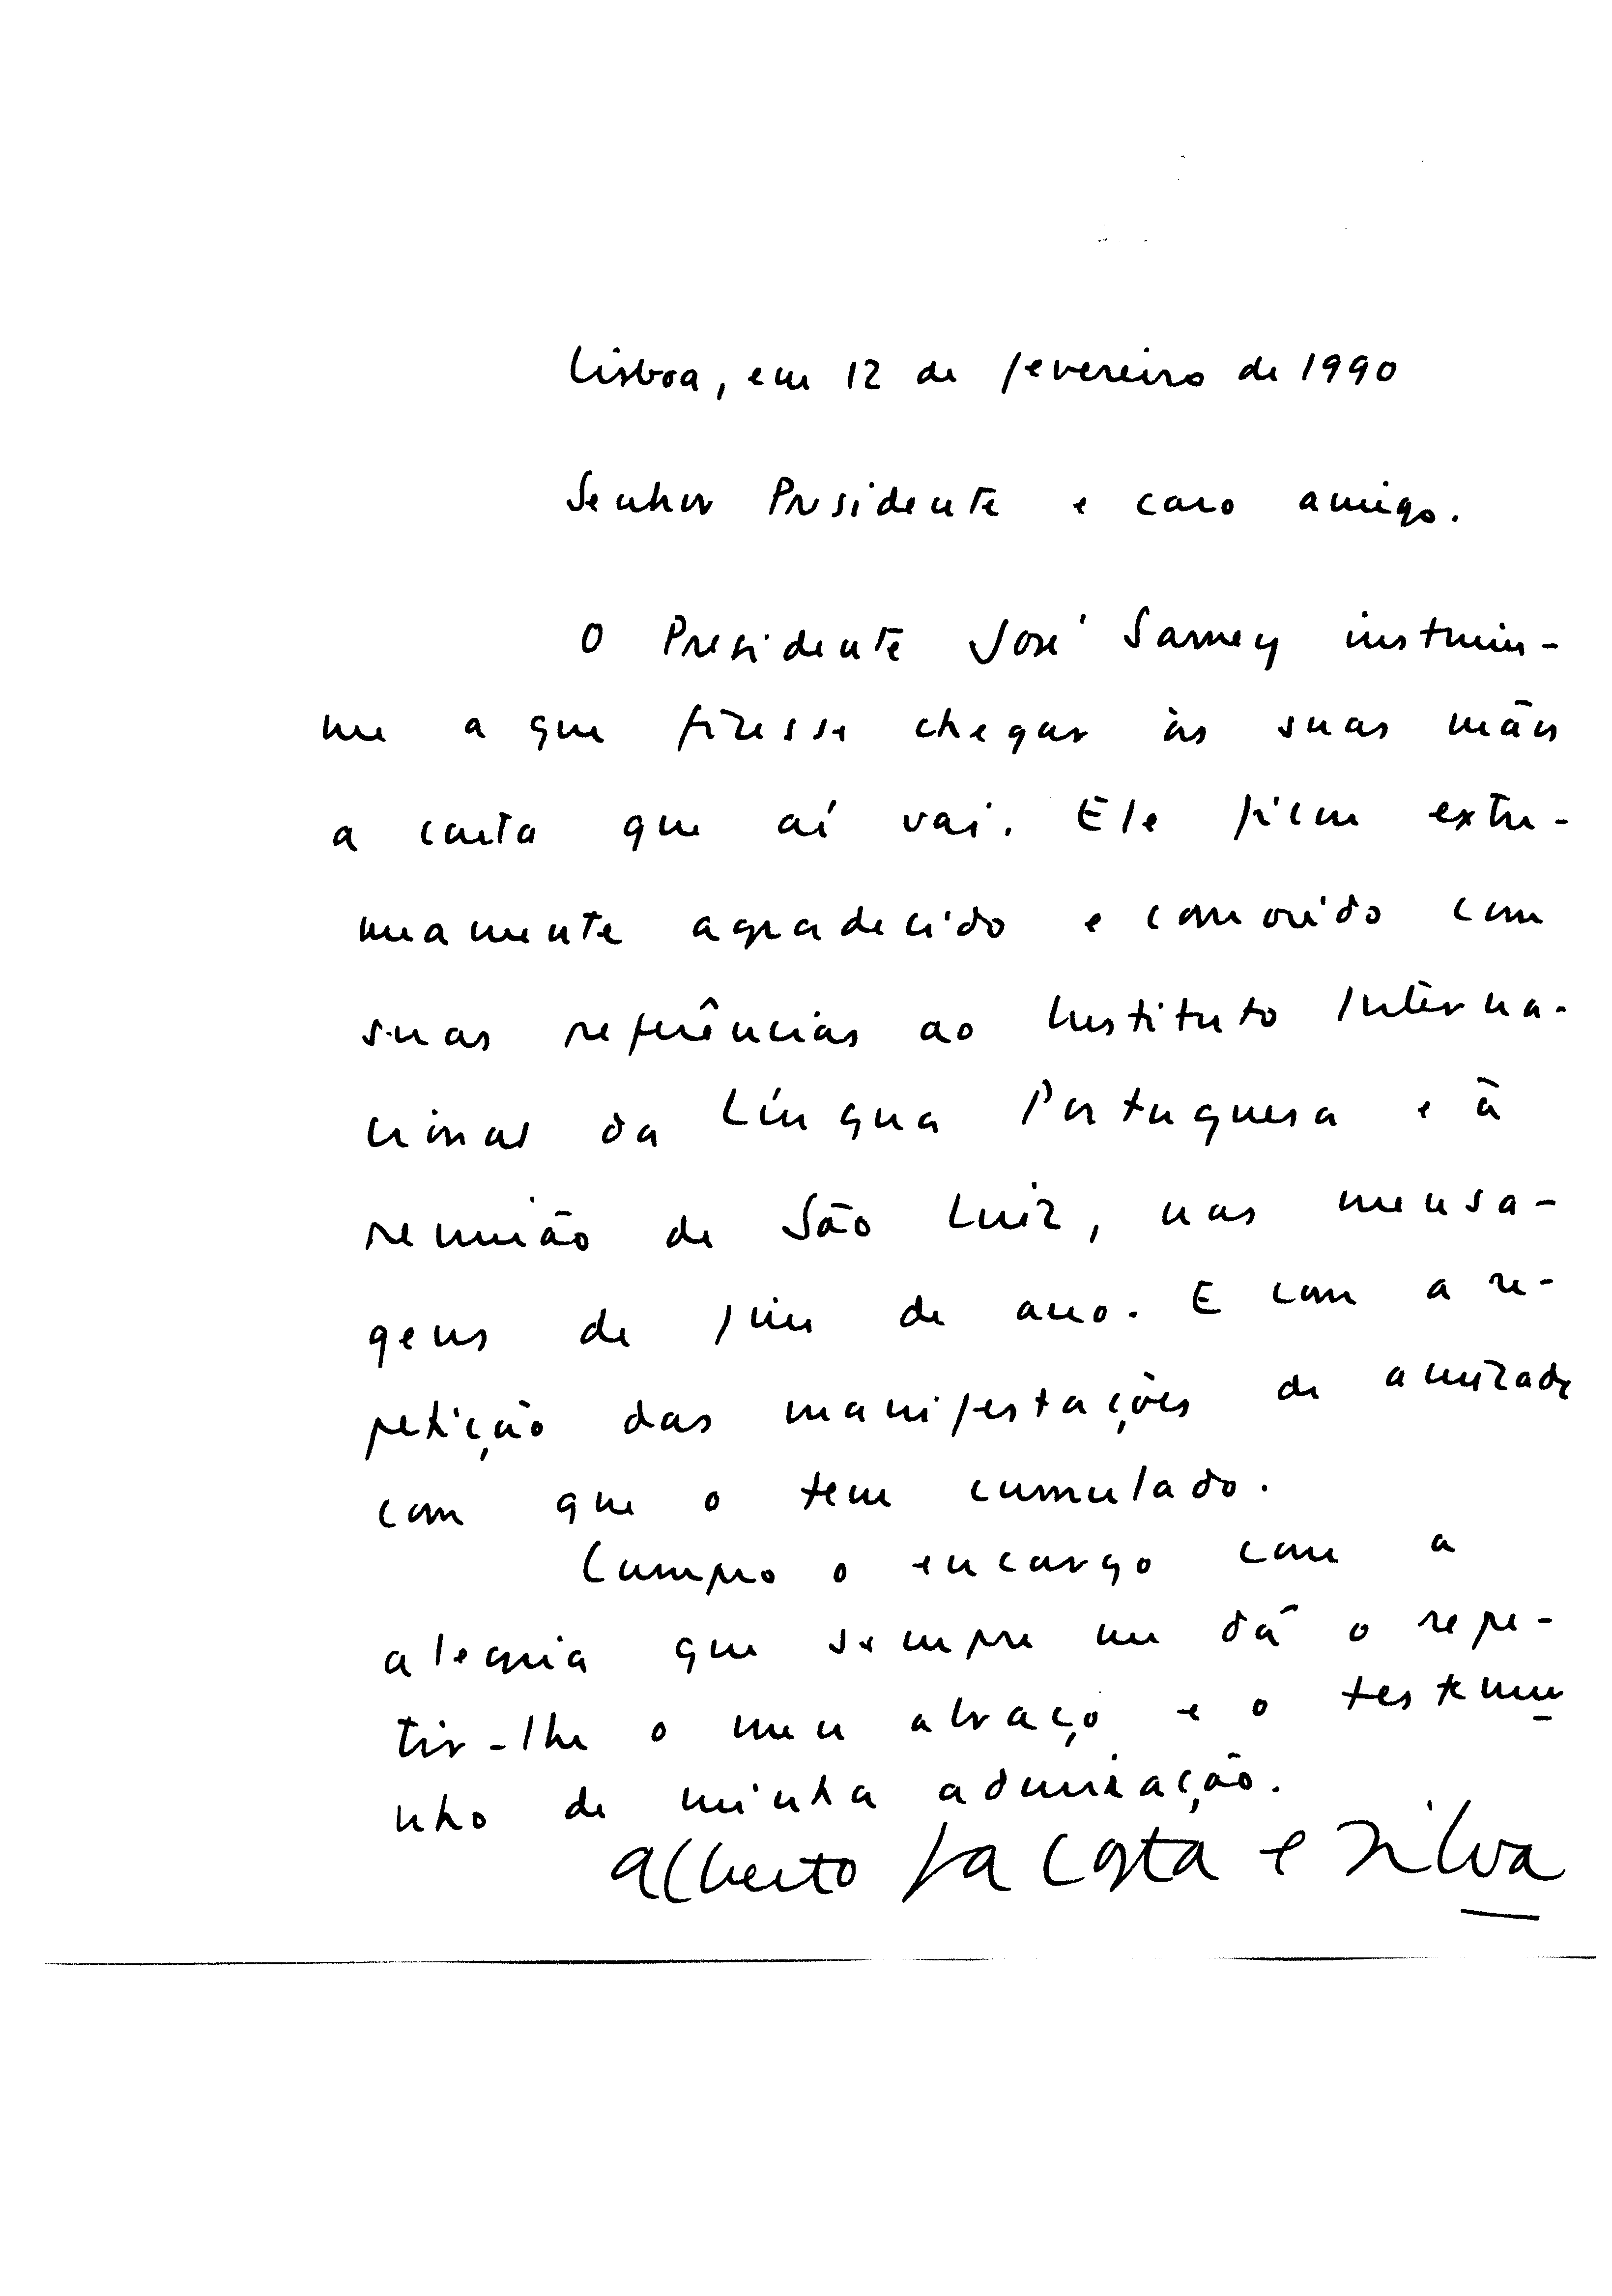 Lisboa, em 12 de fevereiro de 1990
Senhor Presidente e caro amigo.
O Presidente José Sarney instruiu-
me a que fizesse chegar às suas mãos
a carta que aí vai. Ele ficou extre-
mamente agradecido e comovido com
suas referências ao Instituto Interna-
cional da Língua Portuguesa e à
reunião de São Luiz, nas mensa-
gens de fim de ano. E com a re-
petição das manifestações de amizade
com que o tem cumulado.
Cumpro o encargo com a
alegria que sempre me dá o repe-
tir-lhe o meu abraço e o testemu
nho de minha admiração.
Alberto da Costa e Silva